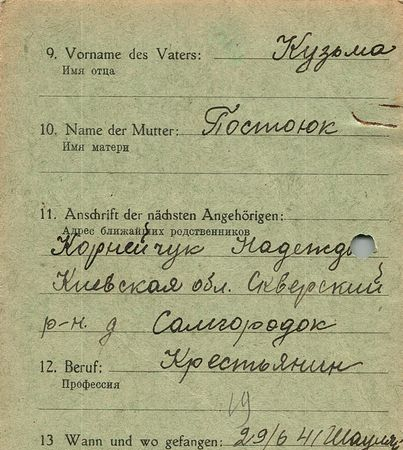 9. Vorname des Vaters: Кузьма
Имя отца
10. Name der Mutter: Постоюк
Имя матери
11. Anschrift der nächsten Angehörigen:
Адрес ближайших родственников
Корнейчук Надежд
Киевская обл. Скверский
р-н. д Самгородок
12. Beruf: Крестьянин
Профессия
19
13 Wann und wo gefangen: 29/6 41 Шауляй